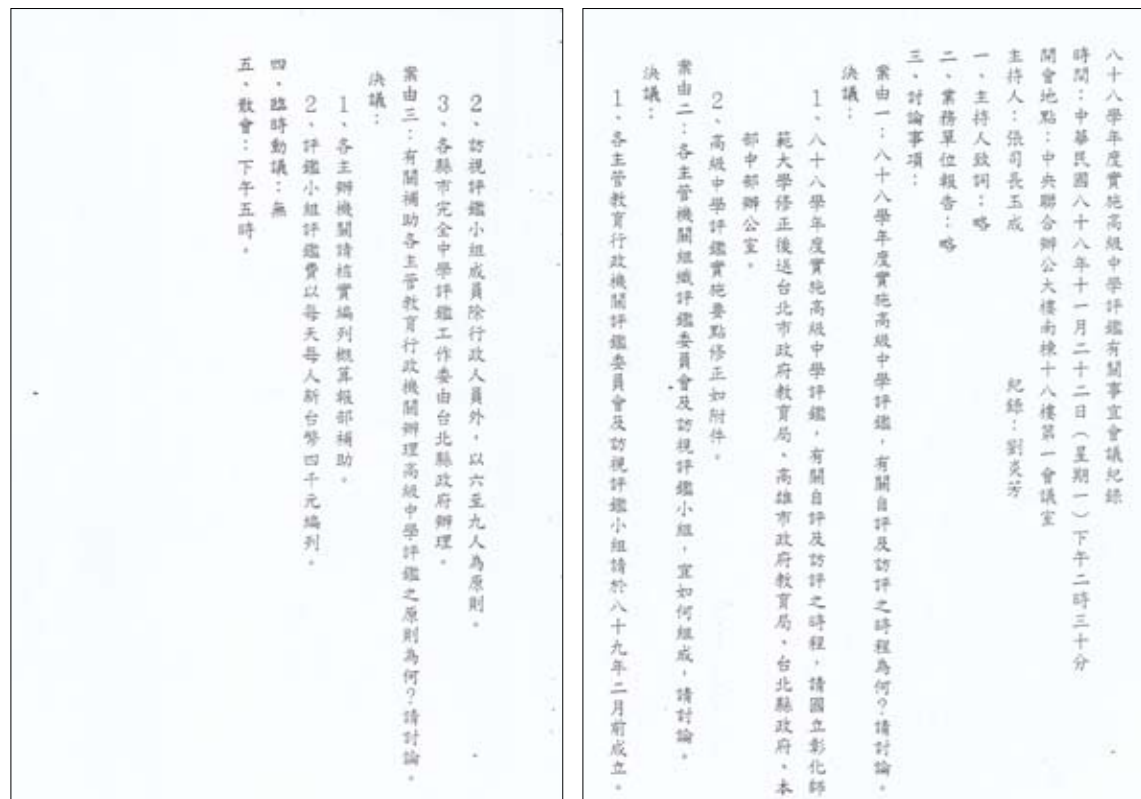 八十八學年度實施高級中學評鑑有關事宜會議紀錄
時間：中華民國八十八年十一月二十二日（星期一）下午二時三十分
開會地點：中央聯合辦公大樓南棟十八樓第一會議室
主持人：張司長玉成　　　　　　紀錄：劉炎芳
一、主持人致詞：略
二、業務單位報告：略
三、討論事項：
案由一：八十八學年度實施高級中學評鑑，有關自評及訪評之時程為何？請討論。
決議：
1、八十八學年度實施高級中學評鑑，有關自評及訪評之時程，請國立彰化師
範大學修正後送台北市政府教育局、高雄市政府教育局、台北縣政府、本
部中部辦公室。
2、高級中學評鑑實施要點修正如附件。
案由二：各主管機關組織評鑑委員會及訪視評鑑小組，宜如何組成，請討論。
決議：
1、各主管教育行政機關評鑑委員會及訪視評鑑小組請於八十九年二月前成立。
2、訪視評鑑小組成員除行政人員外，以六至九人為原則。
3、各縣市完全中學評鑑工作委由台北縣政府辦理。
案由三：有關補助各主管教育行政機關辦理高級中學評鑑之原則為何？請討論。
決議：
1、各主辦機關請核實編列概算報部補助。
2、評鑑小組評鑑費以每天每人新台幣四千元編列。
四、臨時動議：無
五、散會：下午五時。